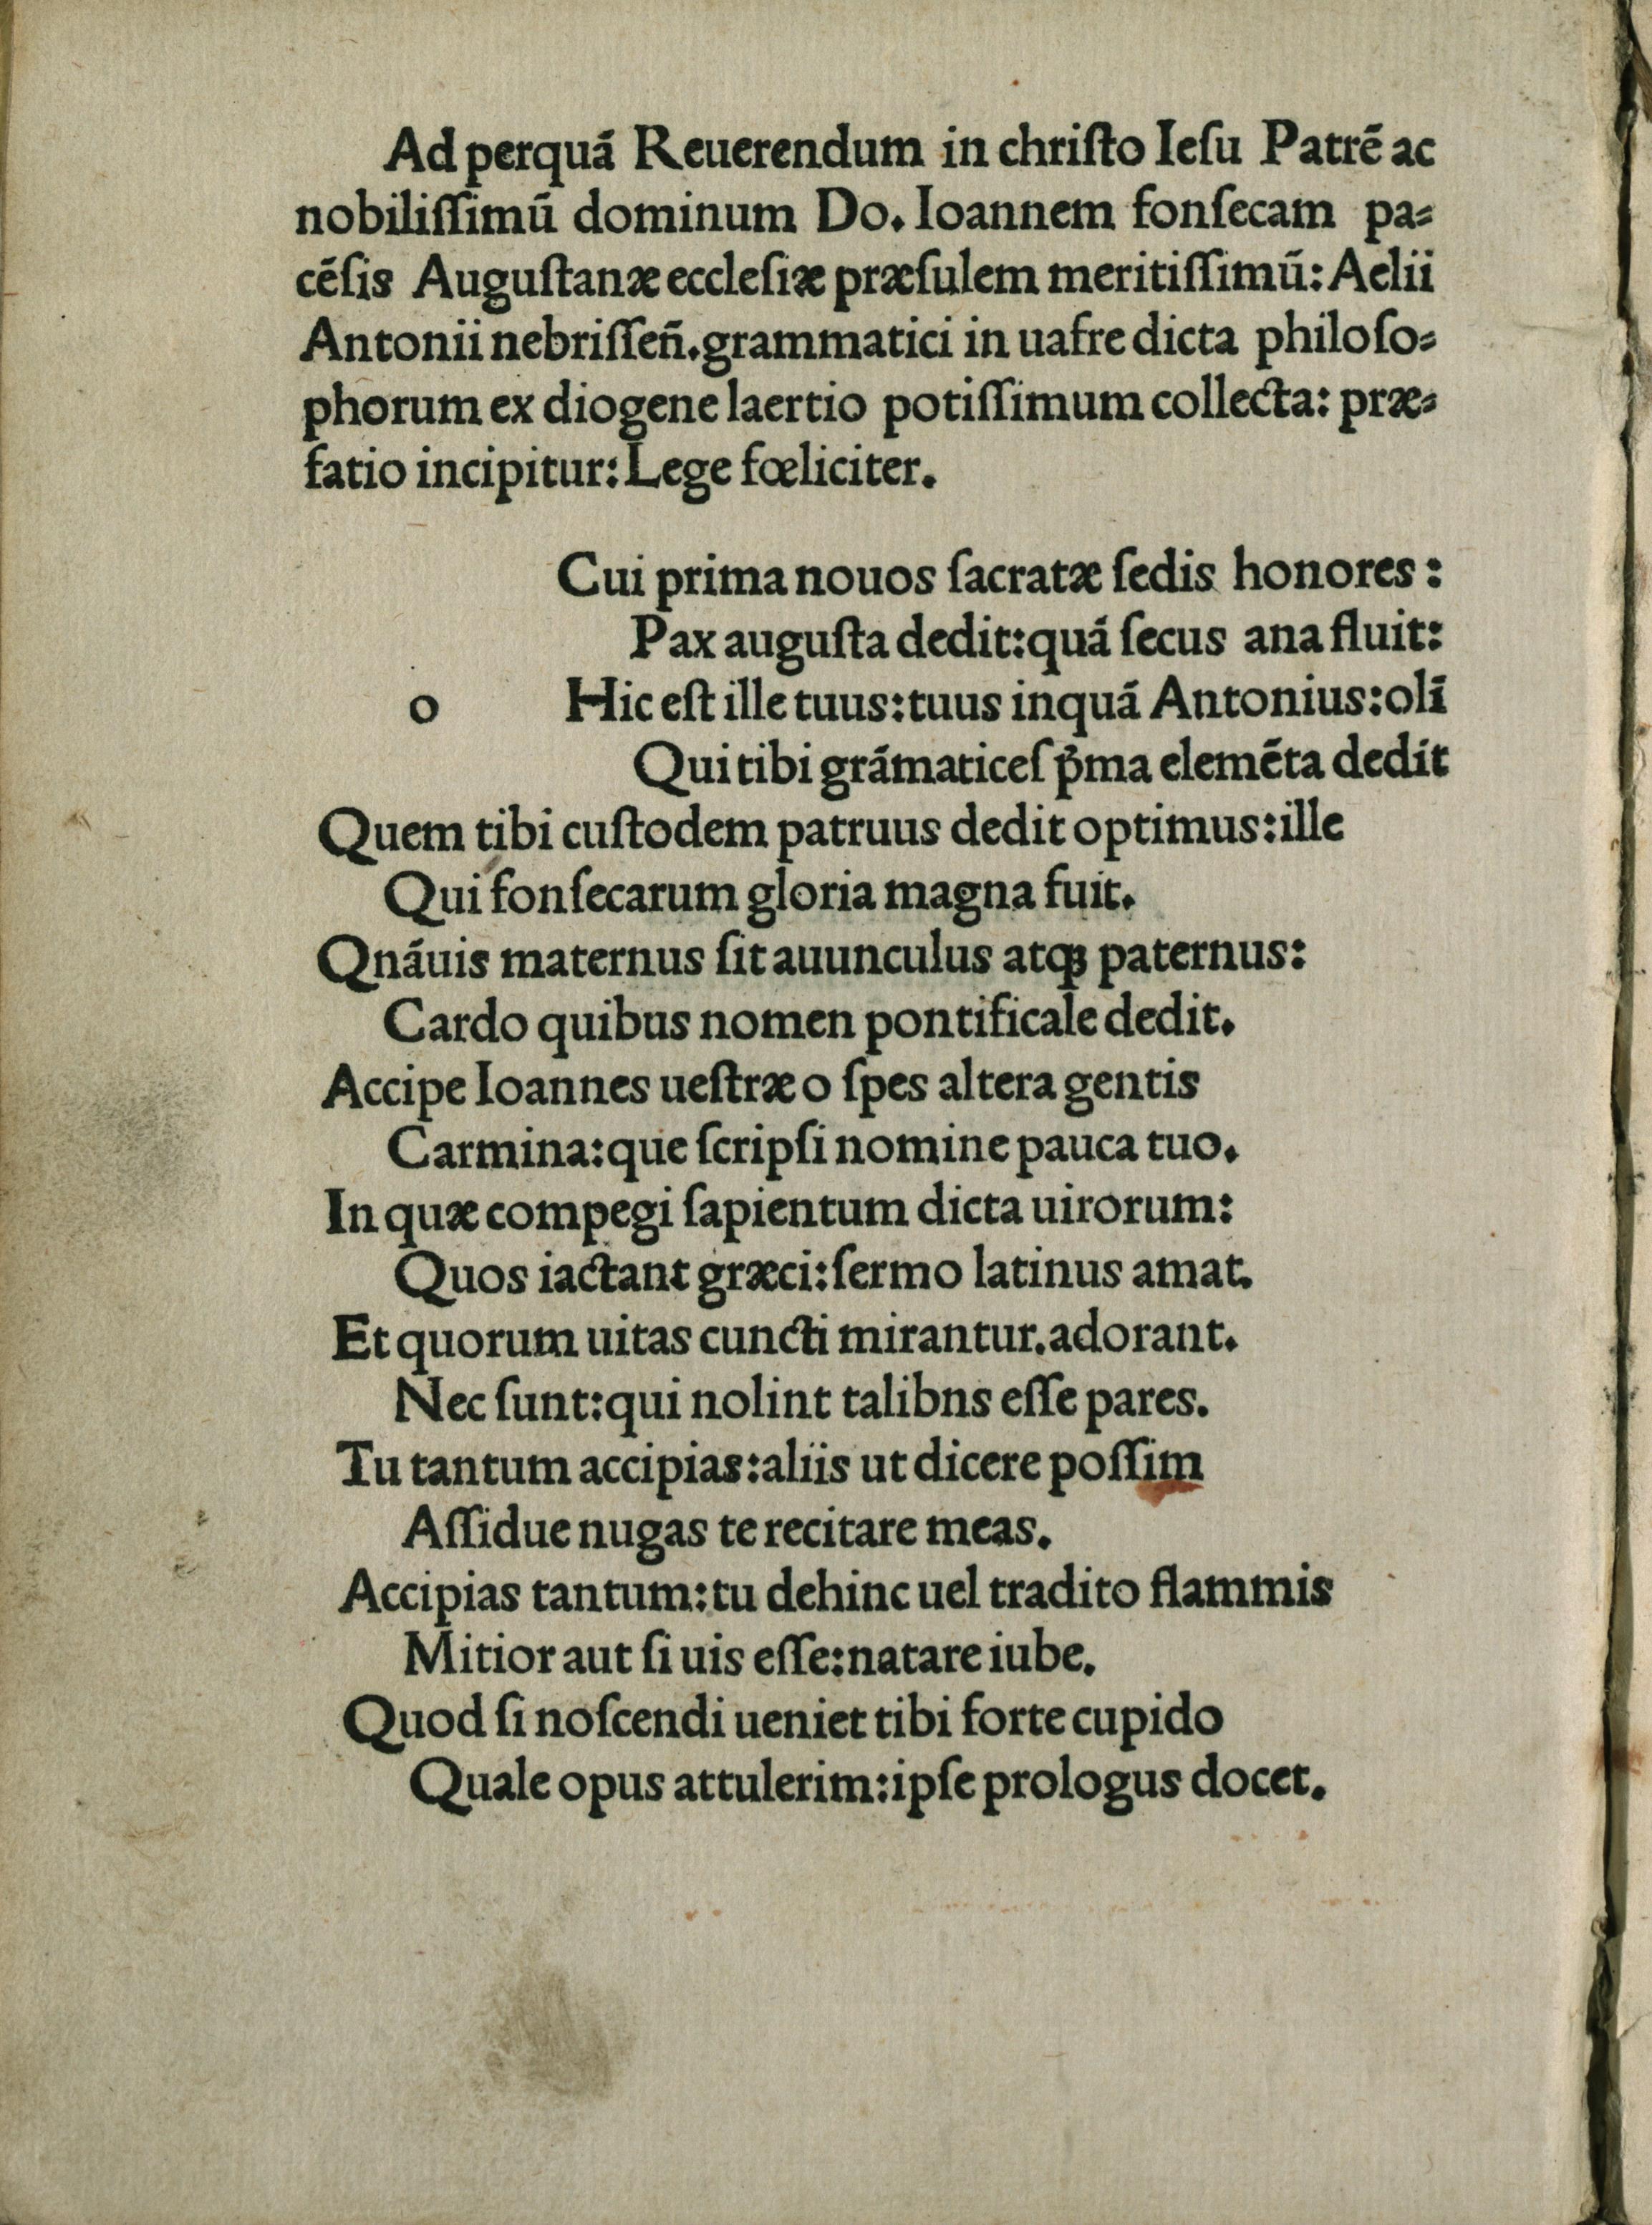 Ad perquā Reuerendum in chriſto Ieſu Patrē ac
nobiliſſimū dominum Do. Ioannem fonſecam pa⸗
cēſis Auguſtanæ eccleſiæ præſulem meritiſſimū: Aelii
Antonii nebriſſen̄.grammatici in uafre dicta philoſo⸗
phorum ex diogene laertio potiſſimum collecta: præ⸗
fatio incipitur: Lege fœliciter.
Cui prima nouos ſacratæ ſedis honores :
Pax auguſta dedit:quā ſecus ana fluit:
o Hic eſt ille tuus:tuus inquā Antonius:olī
Qui tibi grāmaticeſ p̄ma elemēta dedit
Quem tibi cuſtodem patruus dedit optimus:ille
Qui fonſecarum gloria magna fuit.
Qnāuis maternus ſit auunculus atqꝫ paternus:
Cardo quibus nomen pontificale dedit.
Accipe Ioannes ueſtræ o ſpes altera gentis
Carmina:que ſcripſi nomine pauca tuo.
In quæ compegi ſapientum dicta uirorum:
Quos iactant græci:ſermo latinus amat.
Et quorum uitas cuncti mirantur.adorant.
Nec ſunt:qui nolint talibns eſſe pares.
Tu tantum accipias:aliis ut dicere poſſim
Aſſidue nugas te recitare meas.
Accipias tantum:tu dehinc uel tradito flammis
Mitior aut ſi uis eſſe:natare iube.
Quod ſi noſcendi ueniet tibi forte cupido
Quale opus attulerim:ipſe prologus docet.